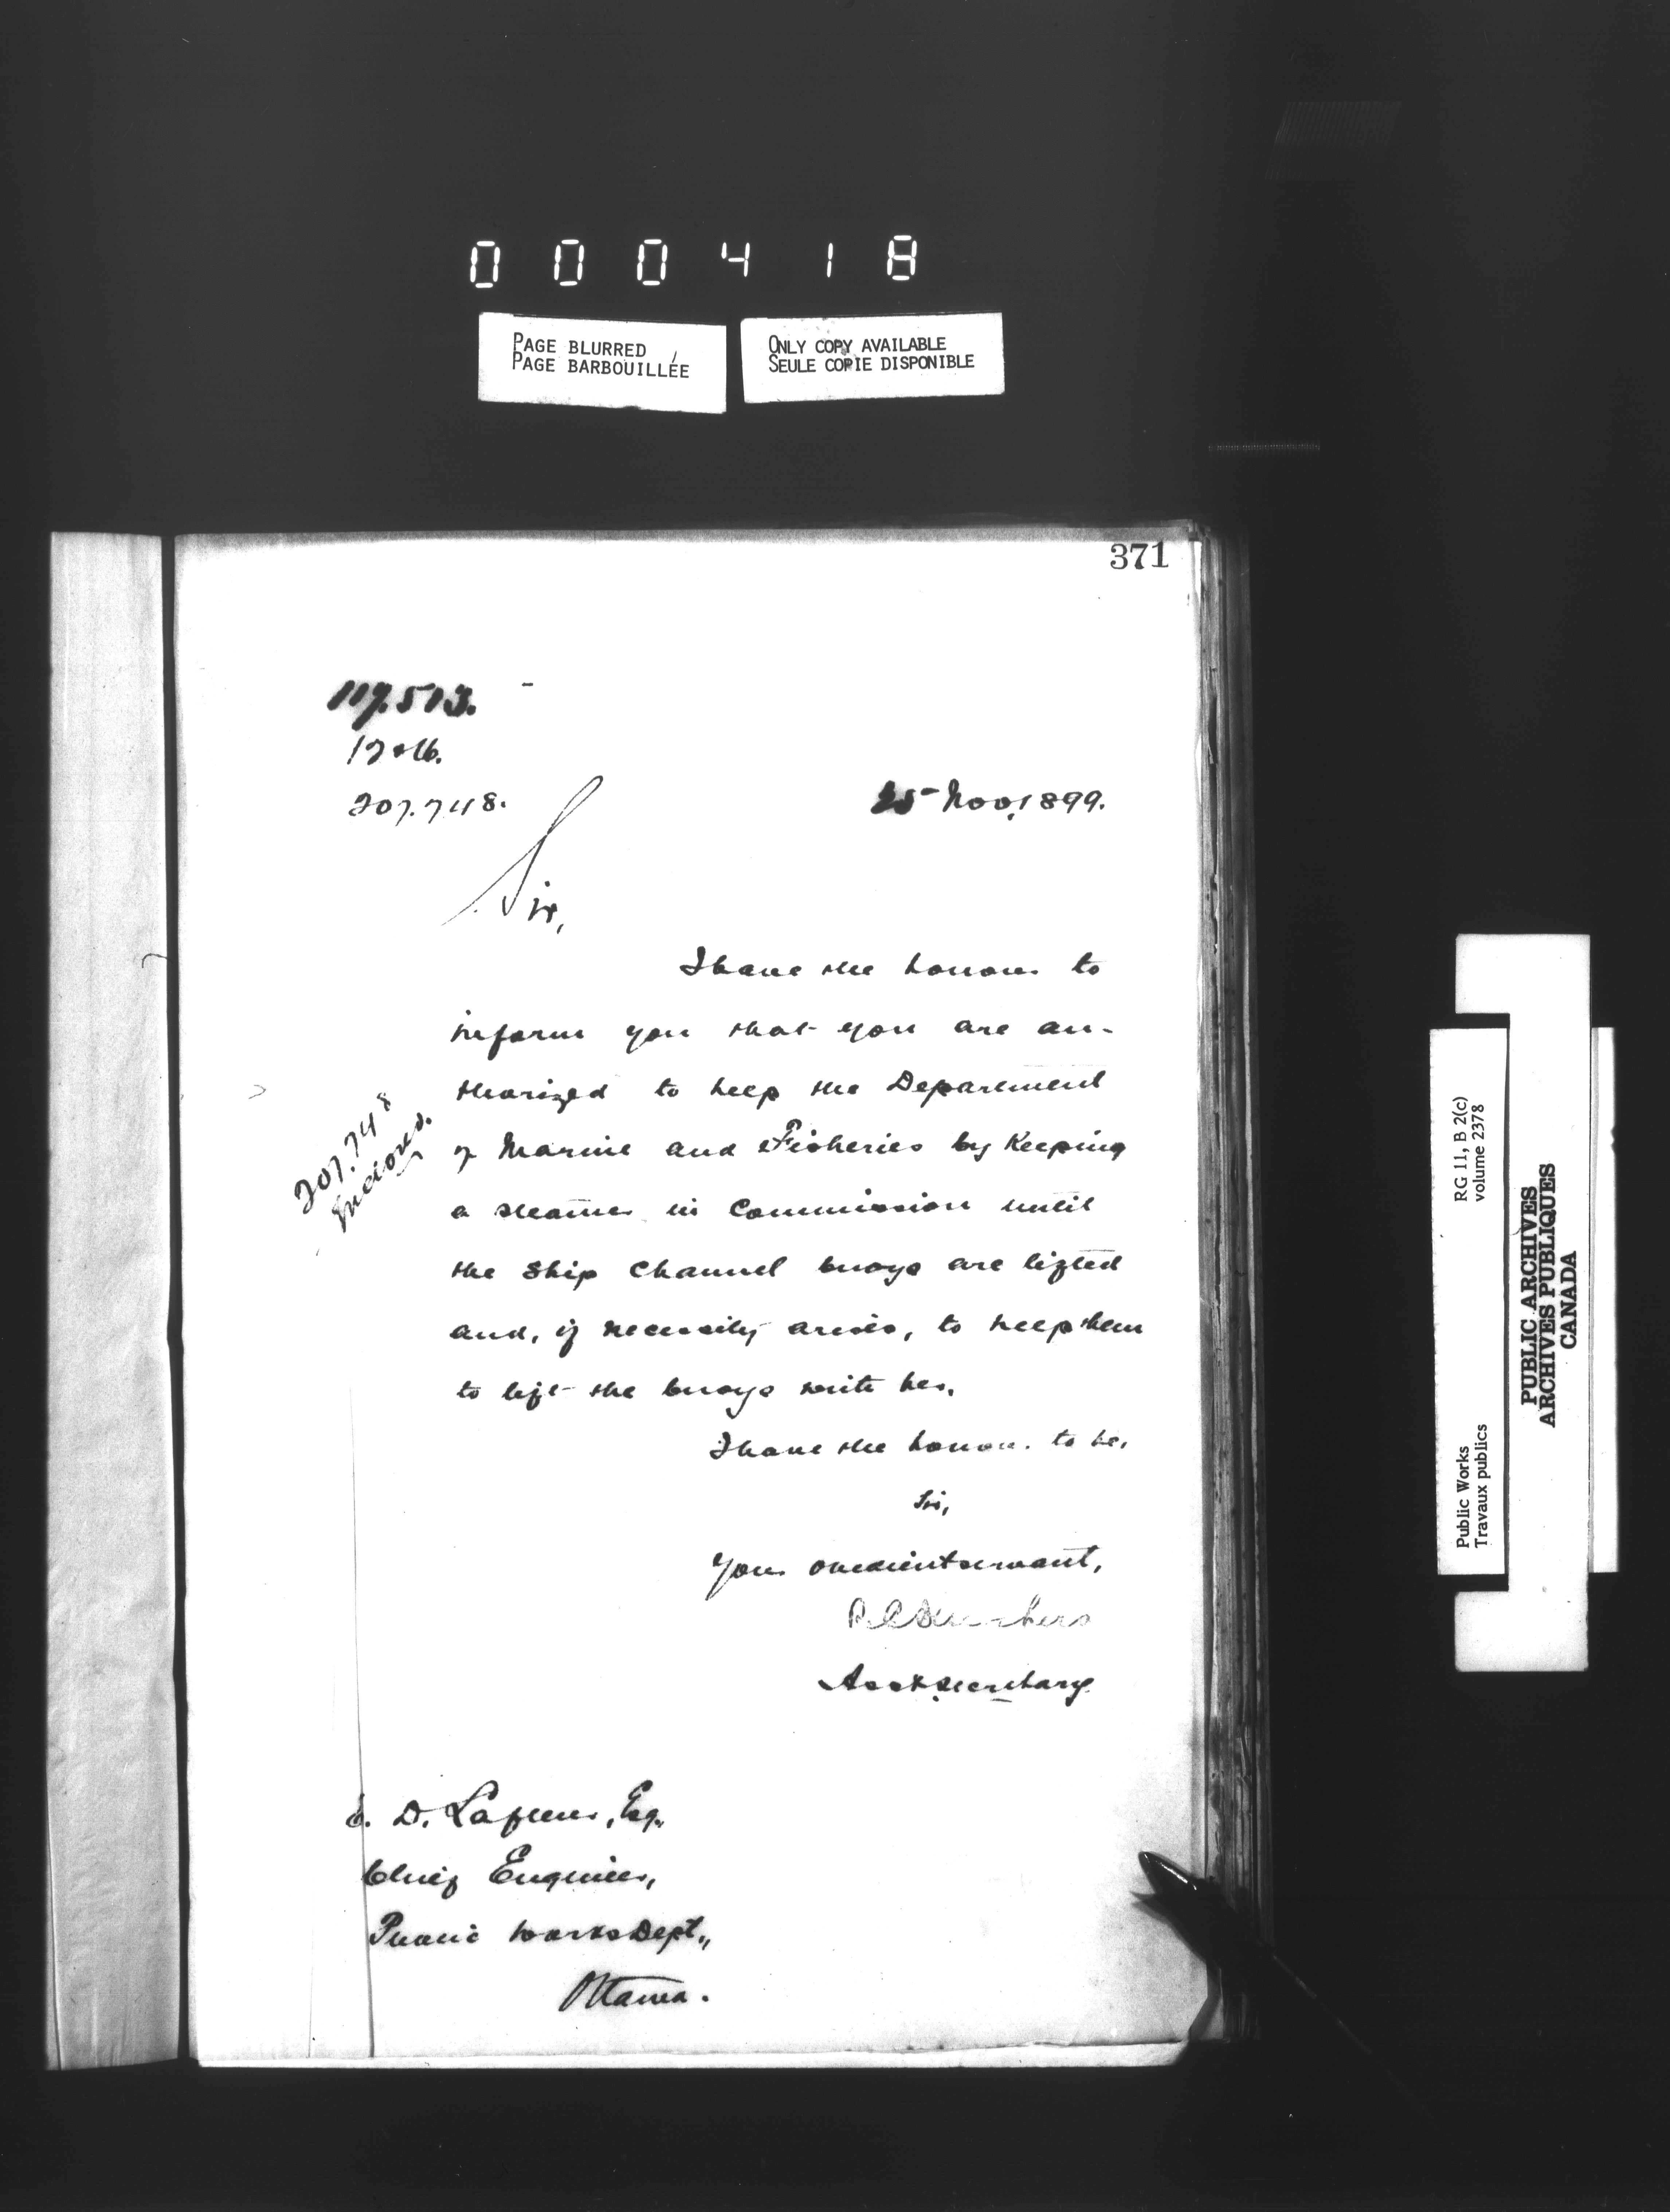 000418
PAGE BLURRED
PAGE BARBOUILLÉE
ONLY COPY AVAILABLE
SEULE COPIE DISPONIBLE
371
117.513.
207.748.
25 Nov, 1899.
Sir,
I have the honour to
inform you that you are au-
thorized to help the Department
of Marine and Fisheries by Keeping
a steamer in Commission until
the Ship Channel buoys are lifted
and, if necessity arises, to help them
to lift the buoys with her.
207.748
I have the honour to be,
Sir,
Your obedient servant,
Asst Secretary.
E. D. Lafleur, Esq.,
Chief Engineer,
Public Works Dept.,
Ottawa.
RG 11, B 2(c)
volume 2378
Public Works
Travaux publics
PUBLIC ARCHIVES
ARCHIVES PUBLIQUES
CANADA